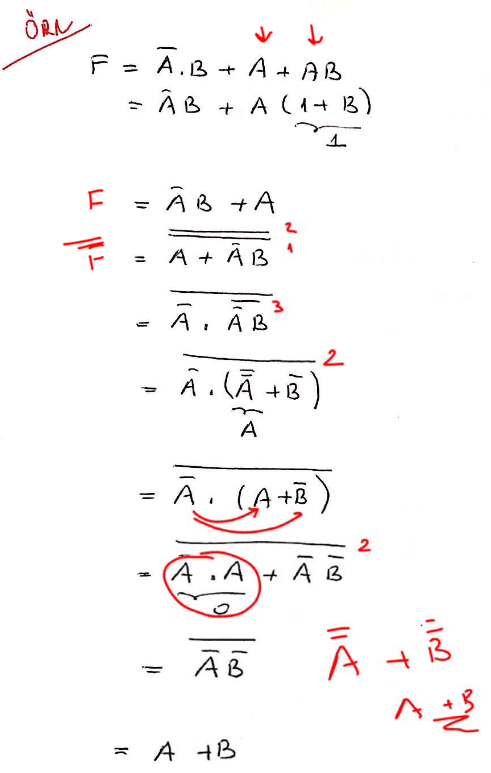 ÖRN
F = A̅.B + A + AB
= A̅B + A (1 + B)
1
F = A̅B + A
2
F̿ = A + A̅B 1
= A̅ . A̅B 3
= A̅ . (A̿ + B̅) 2
A
= A̅ . (A + B̅)
= A̅ . A + A̅ B̅ 2
0
= A̅ B̅ A̿ + B̿
A + B
= A + B